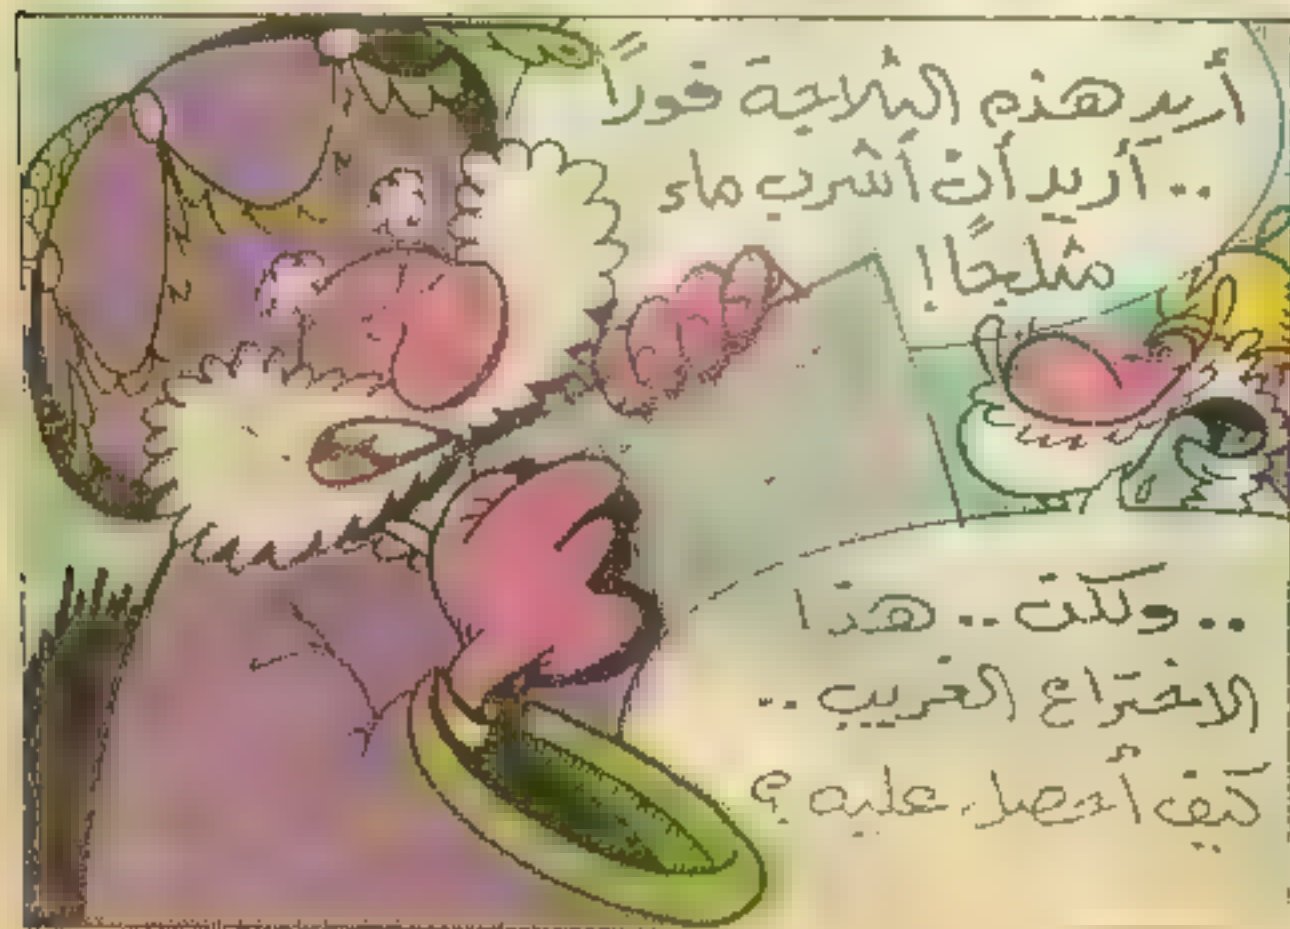 أريد هذه الثلاجة فوراً
.. أريد أن أشرب ماء
مثلجاً!
.. ولكن .. هذا
الاختراع الغريب ..
كيف أحصل عليه ؟